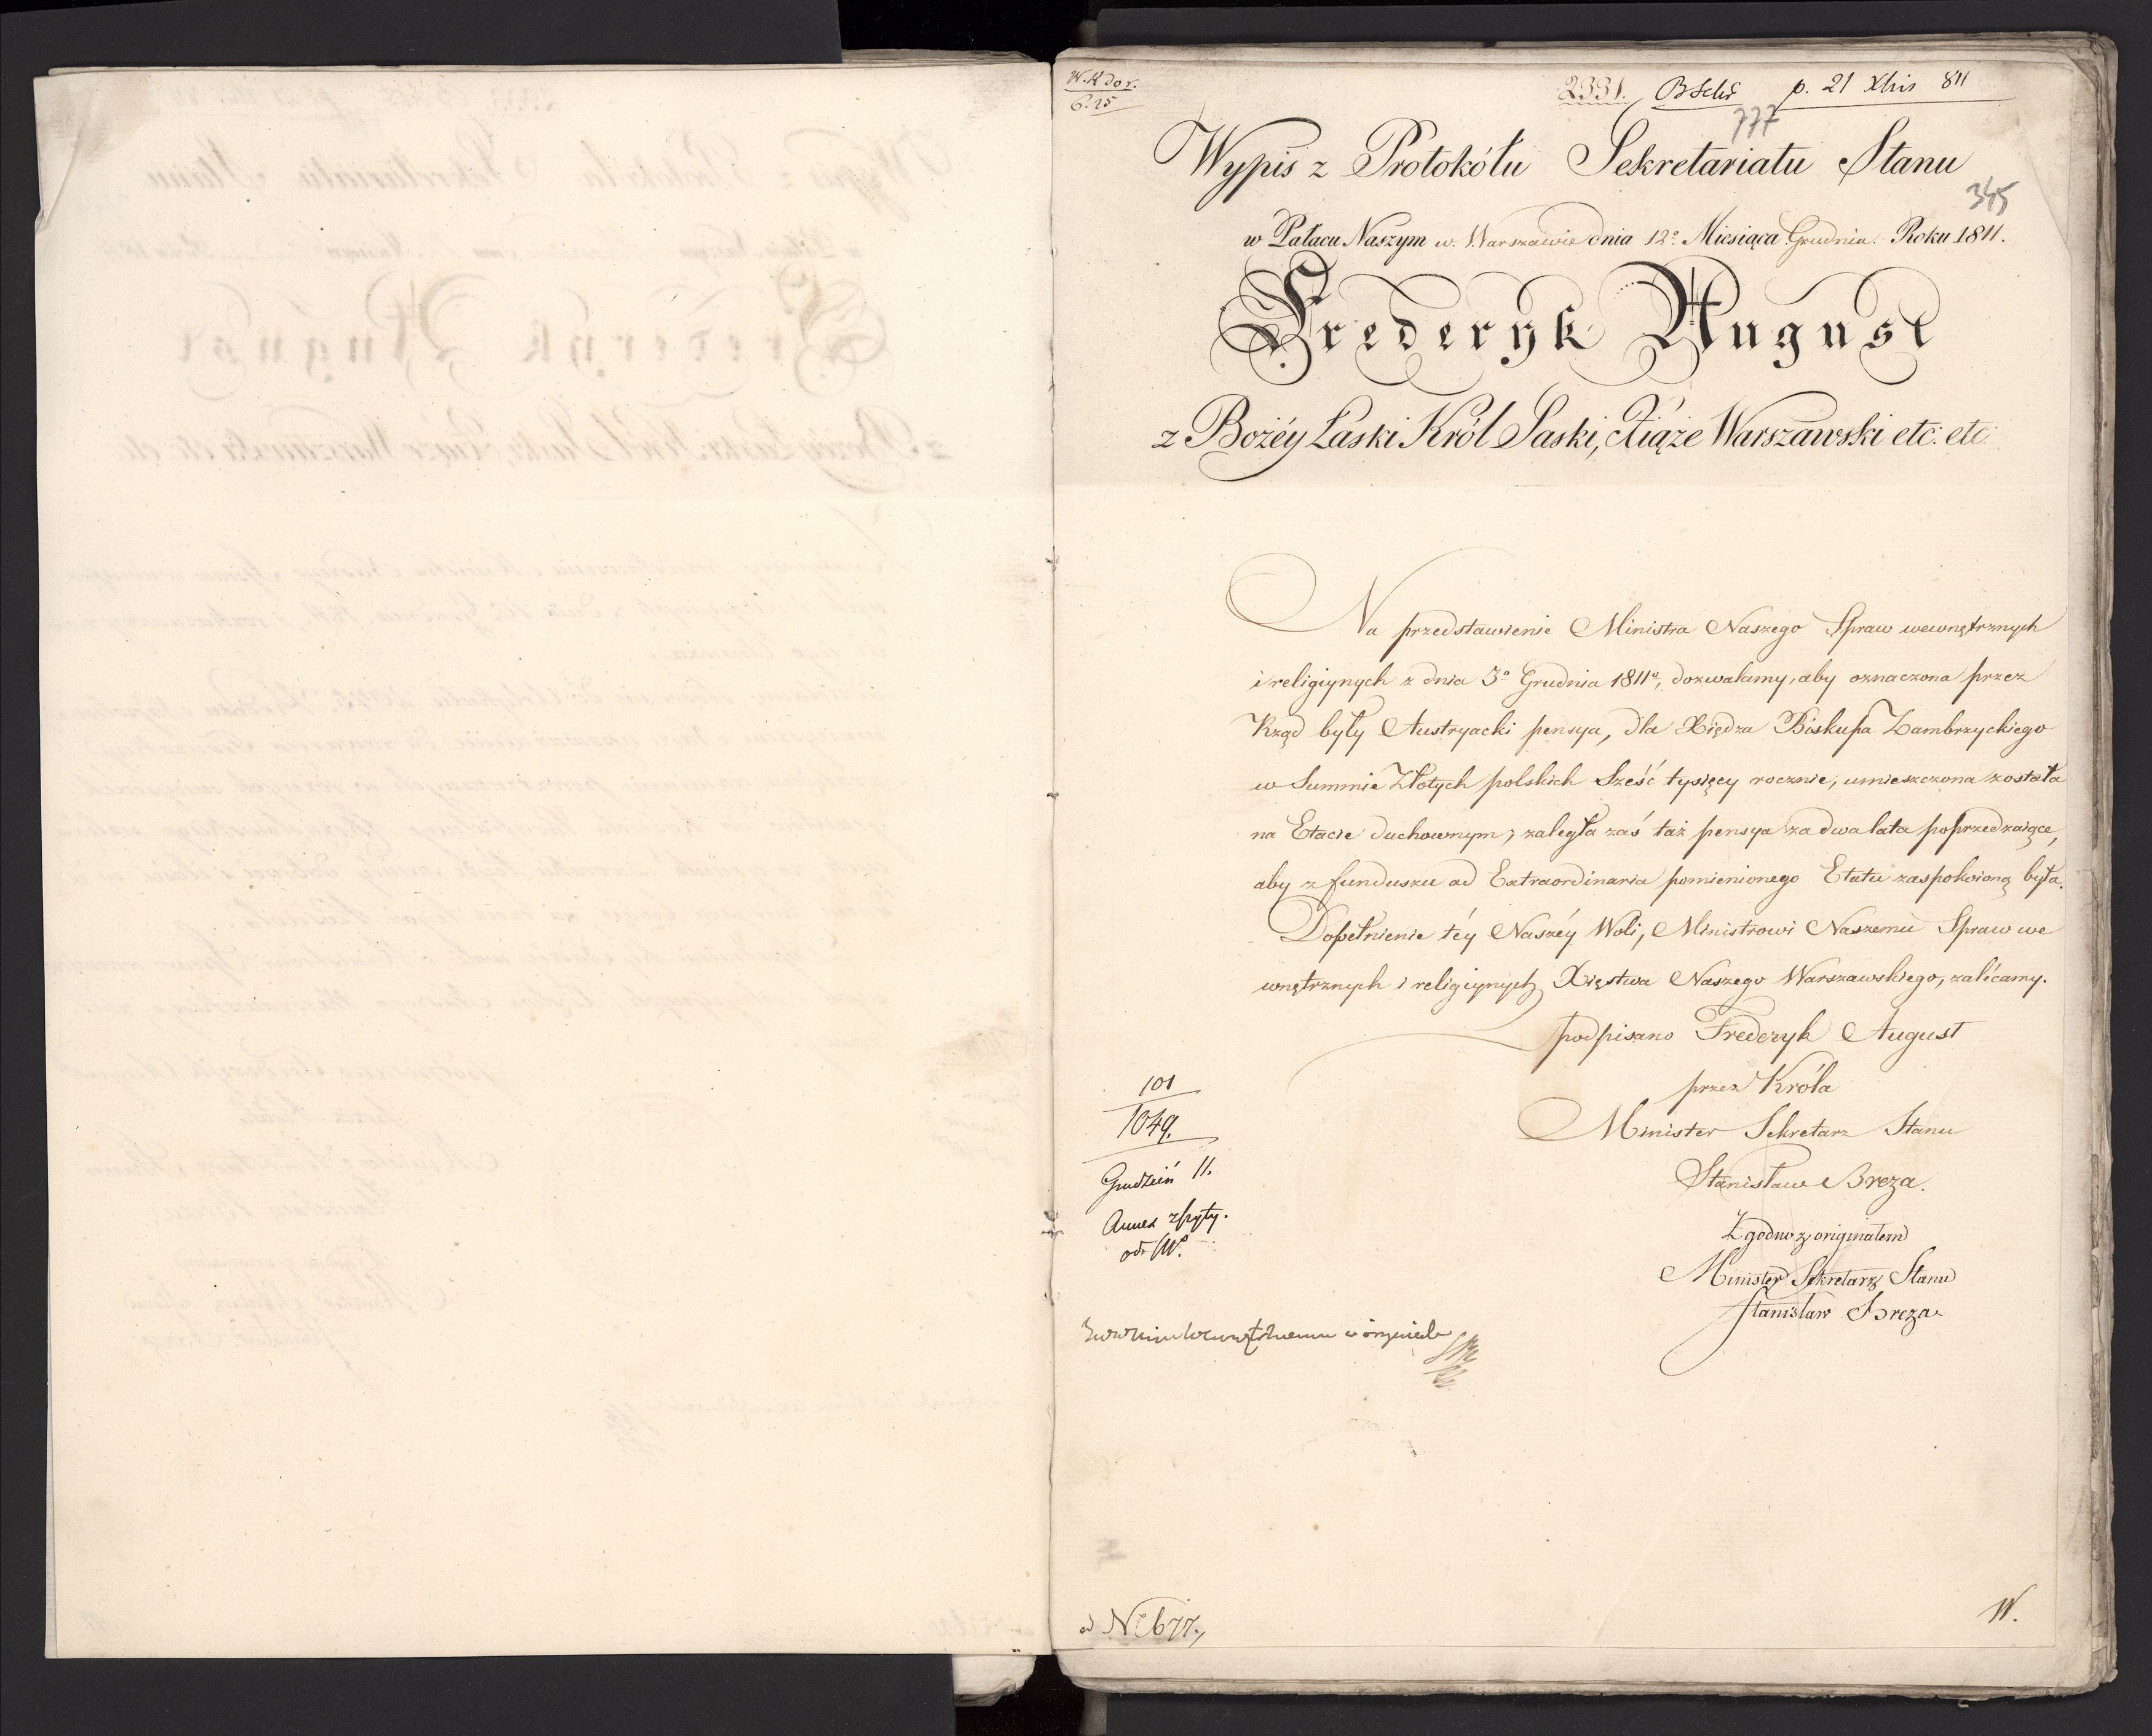 2331. p. 21 Xbris 811
777
Wypis z Protokółu Sekretariatu Stanu
345
w Pałacu Naszym w Warszawie dnia 12º Miesiąca Grudnia. Roku 1811.
Frederyk August
z Bożéy Łaski Król Saski, Xiąże Warszawski etc: etc:
Na przedstawienie Ministra Naszego Spraw wewnętrznych
i religiynych z dnia 3º Grudnia 1811º, dozwalamy, aby oznaczona przez
Rząd były Austryacki pensya, dla Xiędza Biskupa Zambrzyckiego
w Summie Złotych polskich Sześć tysięcy rocznie, umieszczona została
na Etacie duchownym; zaległa zaś taż pensya za dwa lata poprzedzaiące,
aby z funduszu ad Extraordinaria pomienionego Etatu zaspokoioną była.
Dopełnienie téy Naszéy Woli, Ministrowi Naszemu Spraw we
wnętrznych i religiynych Xięstwa Naszego Warszawskiego, zalécamy.
podpisano Frederyk August
przez Króla
Minister Sekretarz Stanu
Stanisław Breza.
Zgodno z originałem
Minister Sekretarz Stanu
Stanisław Breza
101
1049.
Grudzień 11.
ad Nº 677.
W.